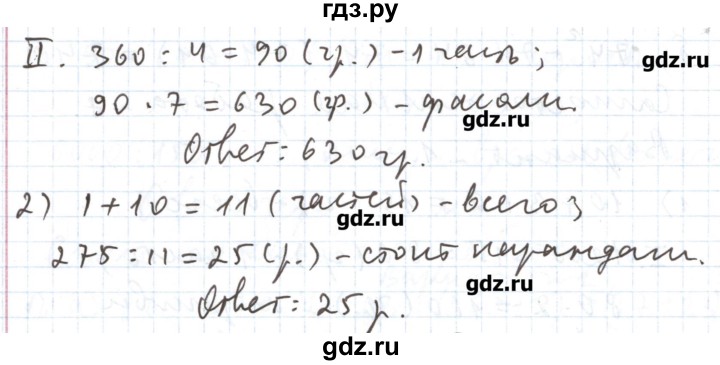 гдз.ру
II. 360 : 4 = 90 (гр.) - 1 часть;
gdz.ru
90 · 7 = 630 (гр.) - фасоли.
gdz.ru
Ответ: 630 гр.
2) 1 + 10 = 11 (частей) - всего;
gdz.ru
275 : 11 = 25 (р.) - стоит карандаш.
gdz.ru
Ответ: 25 р.
gdz.ru